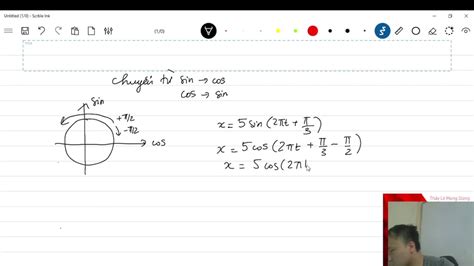 Untitled (1/0) - Scribble Ink
(1/0)
chuyển từ sin → cos
cos → sin
sin
+π/2
-π/2
cos
x = 5 sin(2πt + π/3)
x = 5 cos(2πt + π/3 - π/2)
x = 5 cos(2πt